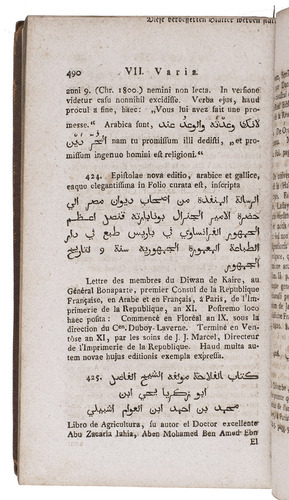 490 VII. Varia.
anni 9. (Chr. 1800.) nemini non lecta. In versione
videtur casu nonnihil excidisse. Verba ejus, haud
procul a fine, haec: „Vous lui avez fait une pro-
messe.“ Arabica sunt, لانك وعدته والوعد عند
الحر دين nam tu promissum illi dedisti, „et pro-
missum ingenuo homini est religioni.“
424. Epistolae nova editio, arabice et gallice,
eaque elegantissima in Folio curata est, inscripta
الرسالة المنفذة من اصحاب ديوان مصر الي
حضرة الامير الجنرال بونابارته قنصل اعظم
الجمهور الفرانساوي في باريس طبع في دار
الطباعة الجمهورية سنة
الجمهور
Lettre des membres du Diwan de Kaire, au
Général Bonaparte, premier Consul de la République
Française, en Arabe et en Français, à Paris, de l'Im-
primerie de la Republique, an XI. Postremo loco
haec posita: Commencé en Floréal an IX, sous la
direction du Cen. Duboy-Laverne. Terminé en Ven-
tôse an XI, par les soins de J. J. Marcel, Directeur
de l'Imprimerie de la Republique. Haud multa au-
tem novae hujus editionis exempla expressa.
425. كتاب الفلاحة مولفه الشيخ الفاضل
ابو زكريا يحيي ابن
محمد بن احمد ابن العوام اشبيلي
Libro de Agricultura, su autor el Doctor excellente
Abu Zacaria Iahia, Aben Mohamed Ben Amed Ebn
El